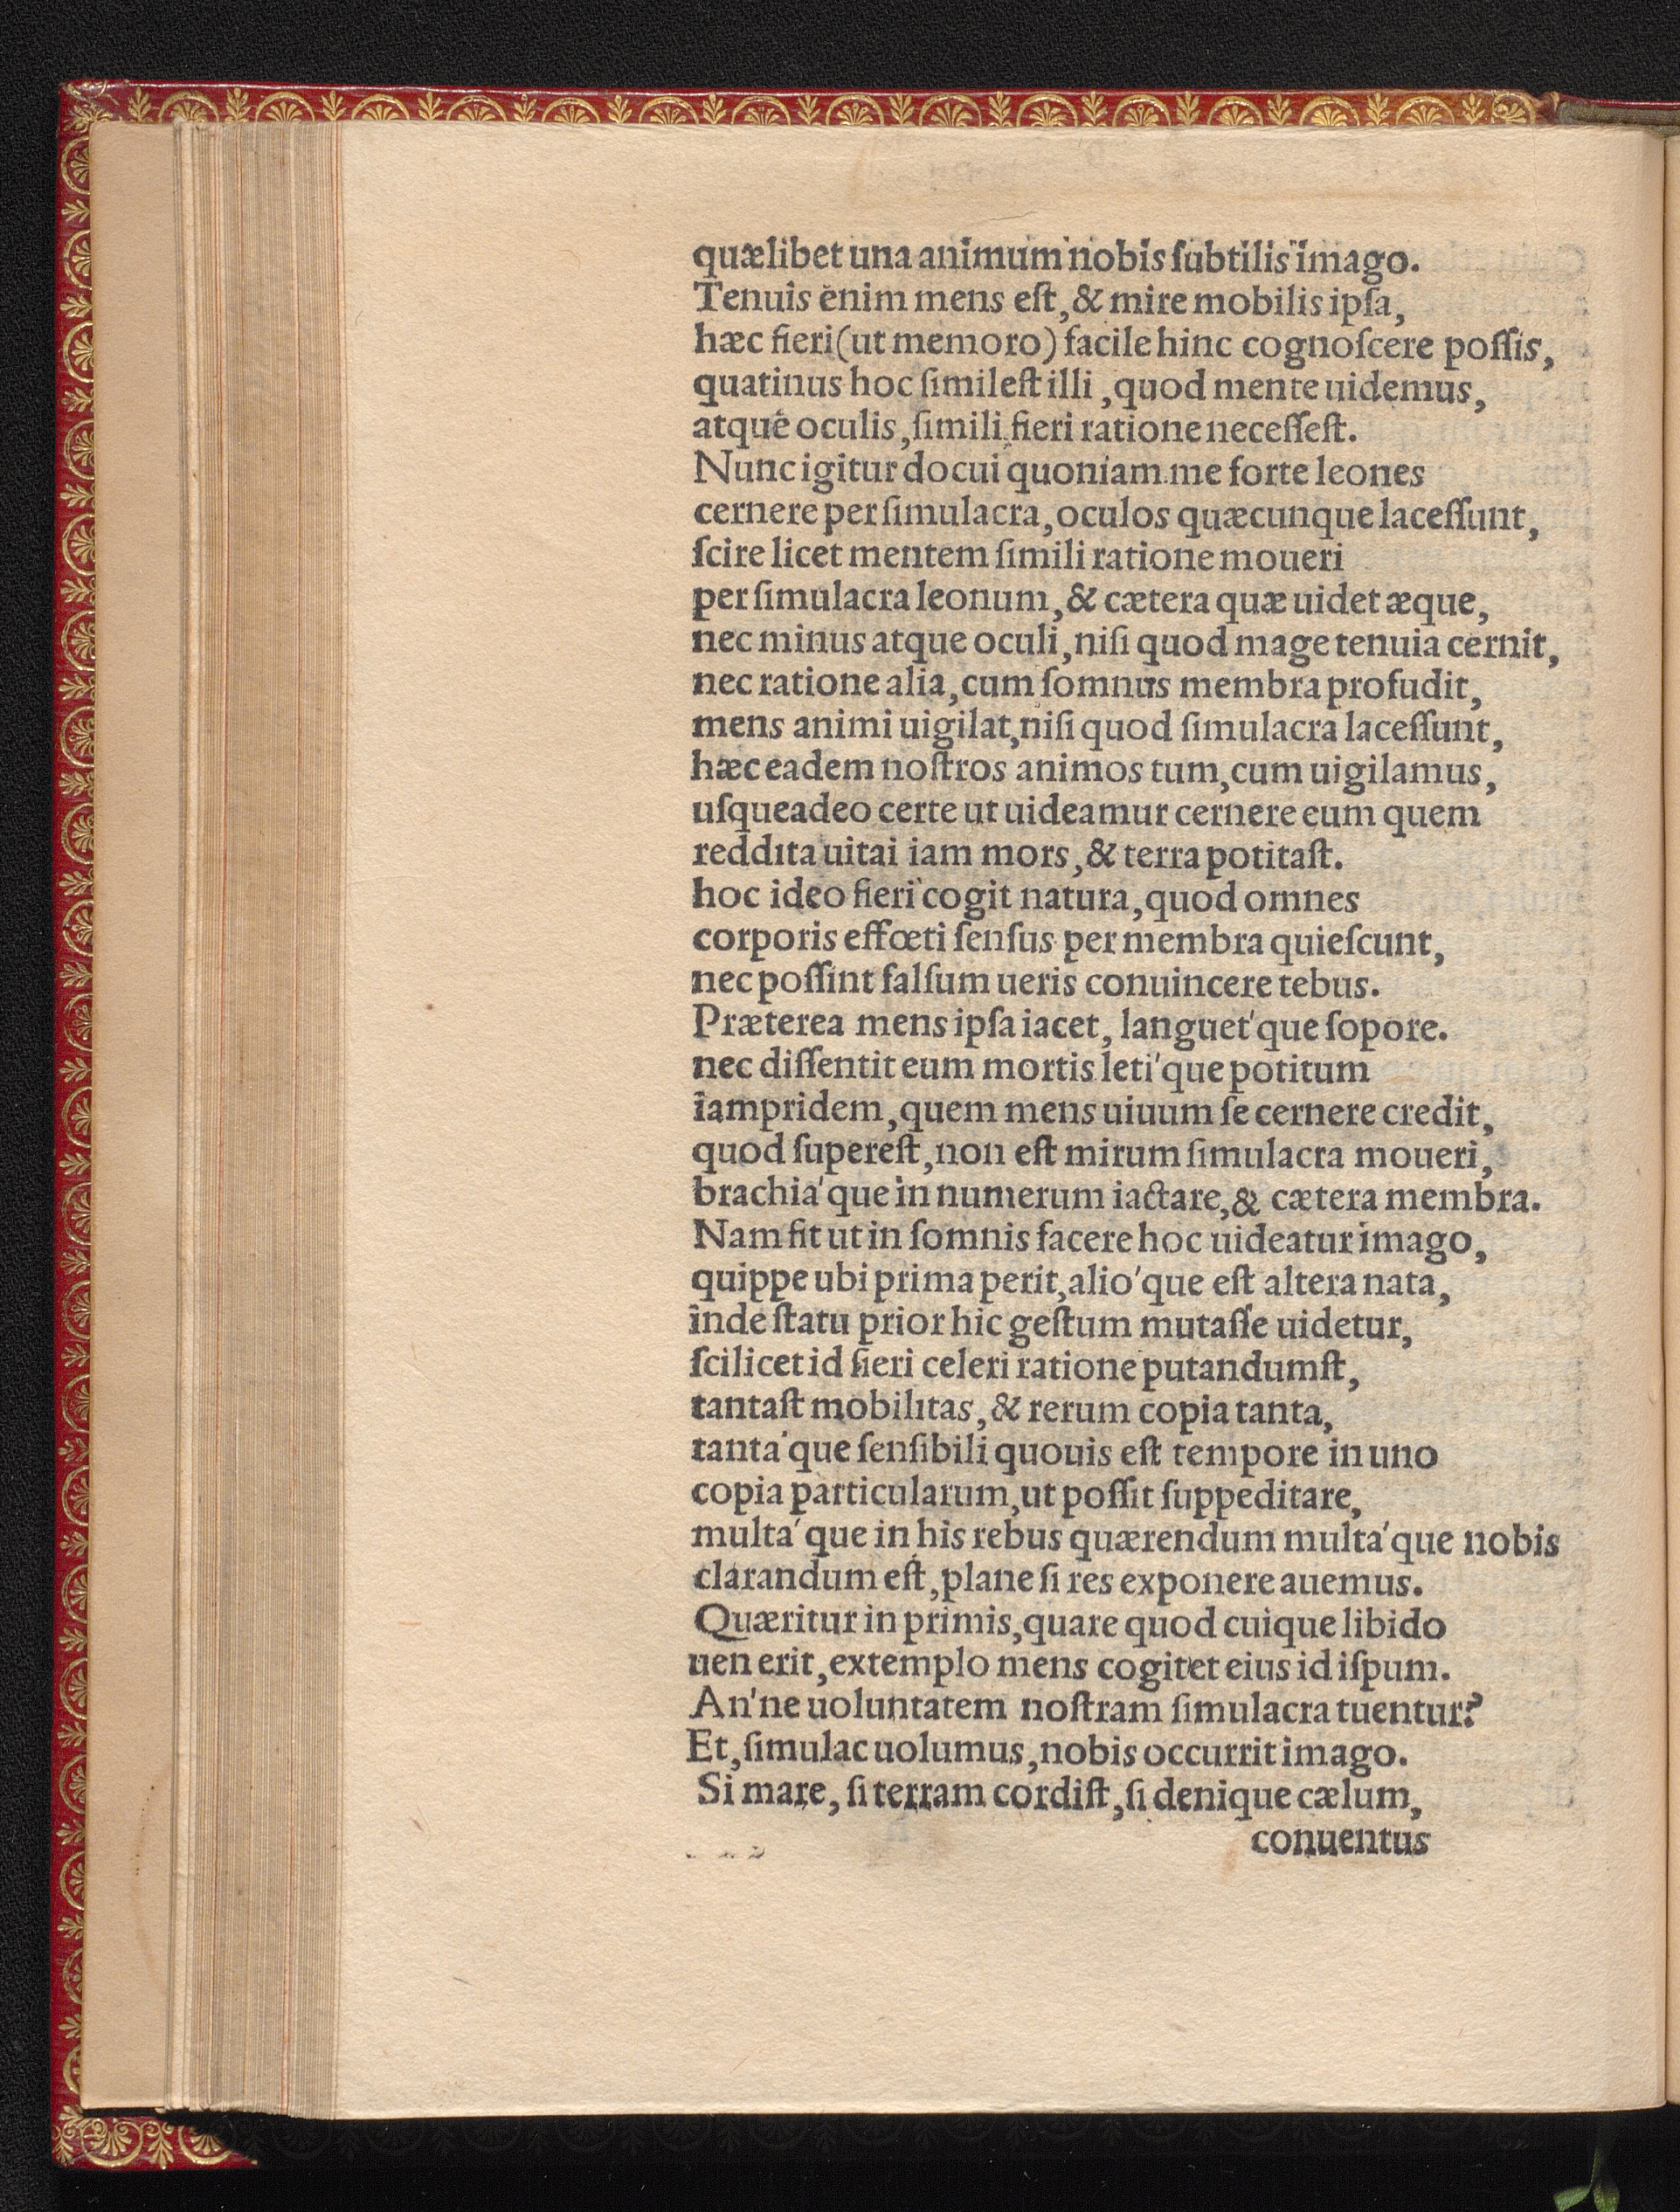 quælibet una animum nobis ſubtilis imago.
Tenuis enim mens eſt, & mire mobilis ipſa,
hæc fieri (ut memoro) facile hinc cognoſcere poſſis,
quatinus hoc ſimileſt illi, quod mente uidemus,
atque oculis, ſimili fieri ratione neceſſeſt.
Nunc igitur docui quoniam me forte leones
cernere per ſimulacra, oculos quæcunque laceſſunt,
ſcire licet mentem ſimili ratione moueri
per ſimulacra leonum, & cætera quæ uidet æque,
nec minus atque oculi, niſi quod mage tenuia cernit,
nec ratione alia, cum ſomnus membra profudit,
mens animi uigilat, niſi quod ſimulacra laceſſunt,
hæc eadem noſtros animos tum, cum uigilamus,
uſqueadeo certe ut uideamur cernere eum quem
reddita uitai iam mors, & terra potitaſt.
hoc ideo fieri cogit natura, quod omnes
corporis effœti ſenſus per membra quieſcunt,
nec poſſint falſum ueris conuincere tebus.
Præterea mens ipſa iacet, languet'que ſopore.
nec diſſentit eum mortis leti'que potitum
iampridem, quem mens uiuum ſe cernere credit,
quod ſupereſt, non eſt mirum ſimulacra moueri,
brachia'que in numerum iactare, & cætera membra.
Nam fit ut in ſomnis facere hoc uideatur imago,
quippe ubi prima perit, alio'que eſt altera nata,
inde ſtatu prior hic geſtum mutaſſe uidetur,
ſcilicet id fieri celeri ratione putandumſt,
tantaſt mobilitas, & rerum copia tanta,
tanta'que ſenſibili quouis eſt tempore in uno
copia particularum, ut poſſit ſuppeditare,
multa'que in his rebus quærendum multa'que nobis
clarandum eſt, plane ſi res exponere auemus.
Quæritur in primis, quare quod cuique libido
uenerit, extemplo mens cogitet eius id iſpum.
An'ne uoluntatem noſtram ſimulacra tuentur?
Et, ſimulac uolumus, nobis occurrit imago.
Si mare, ſi terram cordiſt, ſi denique cælum,
conuentus